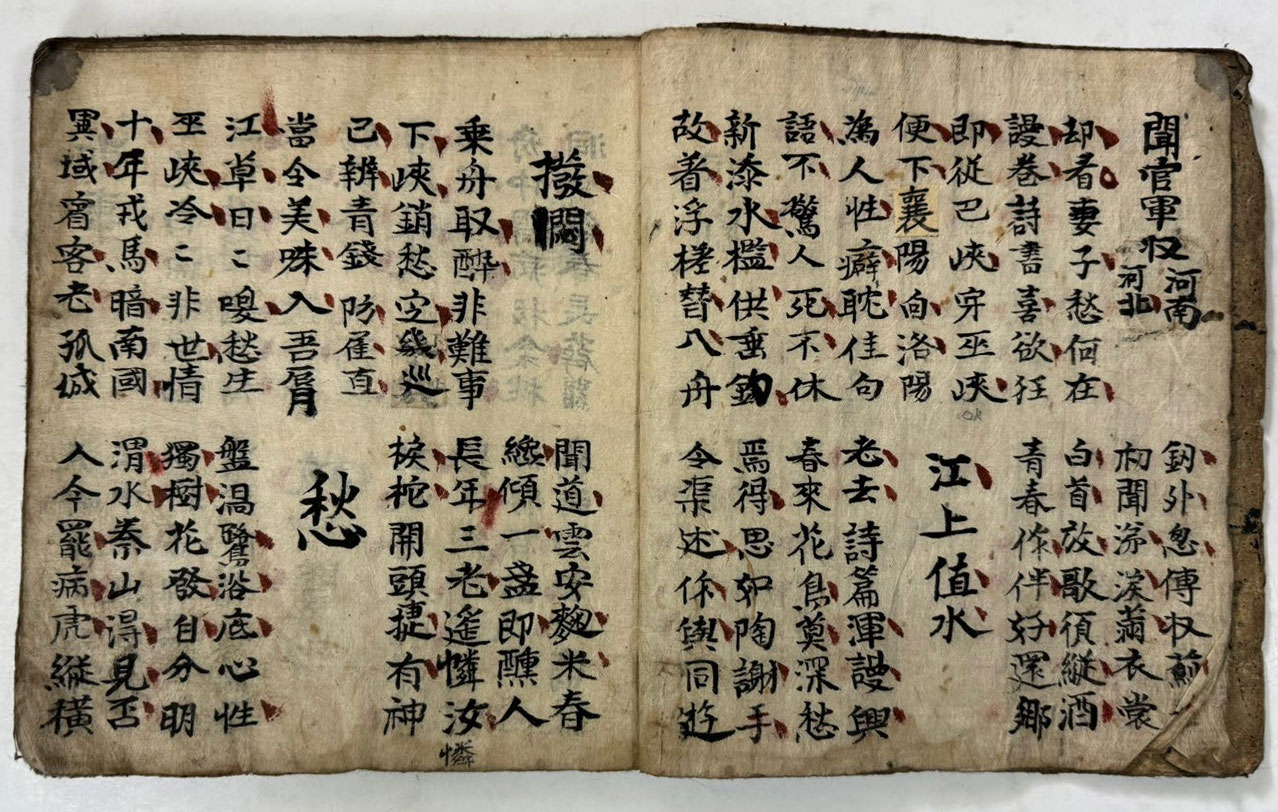 聞官軍収河南
河北
釰外忽傳収薊
初聞涕淚滿衣裳
却看妻子愁何在
謾巻詩書喜欲狂
白首放歌須縱酒
青春作伴好還鄉
即從巴峽穿巫峽
便下襄陽向洛陽
江上值水
為人性癖耽佳句
語不驚人死不休
老去詩篇渾謾興
春來花鳥莫深愁
新添水檻供垂釣
故著浮槎替入舟
焉得思如陶謝手
令渠述作與同遊
撥悶
聞道雲安麴米春
纔傾一盞即醺人
乗舟取醉非難事
下峽銷愁定幾巡
長年三老遙憐汝
憐
捩柁開頭捷有神
已辨青錢防雇直
當令美味入吾唇
愁
江草日〻喚愁生
巫峽冷〻非世情
盤渦鷺浴底心性
獨樹花發自分明
十年戎馬暗南國
異域賓客老孤城
渭水秦山得見否
人今罷病虎縱橫